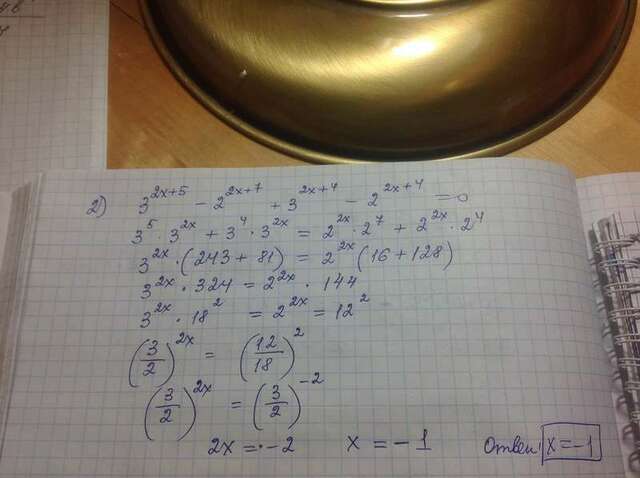 2) 3^(2x+5) - 2^(2x+7) + 3^(2x+4) - 2^(2x+4) = 0
3^5 · 3^(2x) + 3^4 · 3^(2x) = 2^(2x) · 2^7 + 2^(2x) · 2^4
3^(2x) · (243 + 81) = 2^(2x) (16 + 128)
3^(2x) · 324 = 2^(2x) · 144
3^(2x) · 18^2 = 2^(2x) = 12^2
(3/2)^(2x) = (12/18)^2
(3/2)^(2x) = (3/2)^(-2)
2x = -2 x = -1 Ответ: x = -1